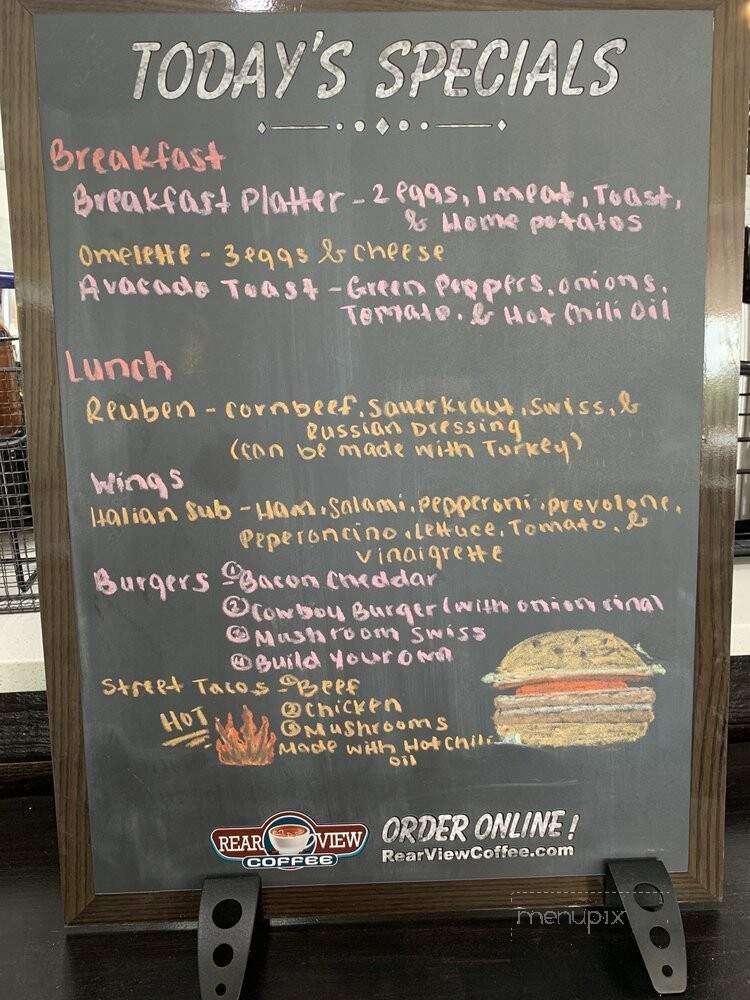 TODAY'S SPECIALS
Breakfast
Breakfast Platter - 2 eggs, 1 meat, Toast,
& Home potatos
Omelette - 3 eggs & cheese
Avacado Toast - Green Peppers, onions,
Tomato, & Hot Chili Oil
Lunch
Reuben - cornbeef, Sauerkraut, Swiss, &
Russian Dressing
(can be made with Turkey)
Wings
Italian Sub - Ham, Salami, pepperoni, provolone,
Peperoncino, Lettuce, Tomato, &
Vinaigrette
Burgers - ① Bacon Cheddar
② Cowboy Burger (with onion ring)
③ Mushroom Swiss
④ Build Your Own
Street Tacos - ① Beef
HOT ② Chicken
③ Mushrooms
Made with Hot Chili
Oil
REAR VIEW
COFFEE
ORDER ONLINE!
RearViewCoffee.com
menupix